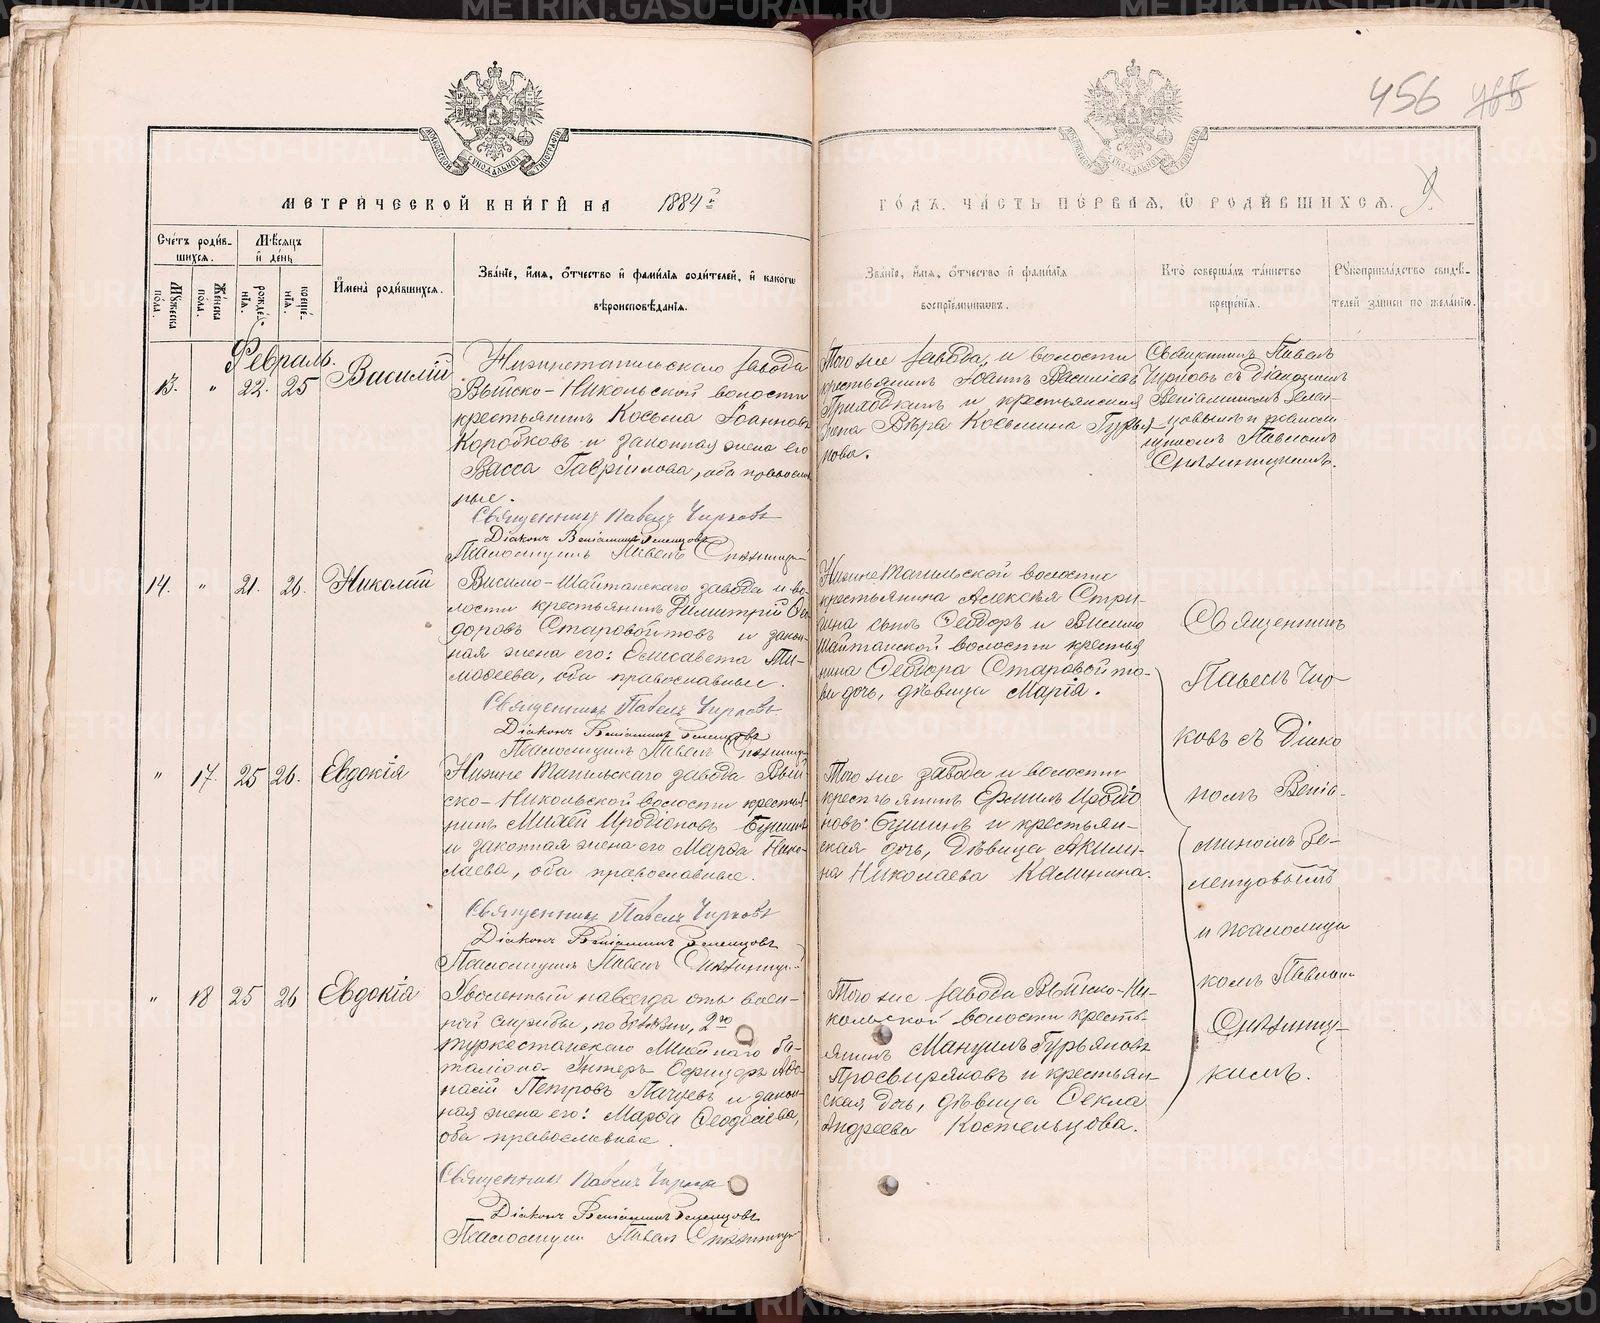 456 465
МЕТРИ́ЧЕСКОЙ КНИ́ГИ НА 1884 г.
ГО́ДЪ, ЧА́СТЬ ПЕ́РВАЯ, Ѡ РОДИ́ВШИХСЯ.
9
Сче́тъ роди́в-
шихся.
Мѣ́сяцъ
и́ день
Мꙋжеска
пола.
Же́нска
пола.
рожде-
нія.
креще́-
нія.
И҆мена̀ роди́вшихся.
Зва́ніе, и҆́мя, о҆́тчество и҆ фами́лія роди́телей, и҆ како́гѡ
вѣроисповѣ́данія.
Зва́ніе, и҆́мя, о҆́тчество и҆ фами́лія
воспріе́мникѡвъ.
Кто̀ соверша́лъ та́инство
креще́нія.
Рꙋкоприкла́дство свидѣ́-
телей за́писи по жела́нію.
Февраль.
13. " 22. 25 Василій
Нижнетагильскаго завода
Выйско-Никольской волости
крестьянинъ Косьма Іоанновъ
Коробковъ и законная жена его
Васса Гавріилова, оба православ
ные.
Священникъ Павелъ Чирковъ
Діаконъ Веніаминъ Зеленцовъ
Псаломщикъ Павелъ
Того же завода и волости
крестьянинъ Іоаннъ Василіевъ
и крестьянская
жена Вѣра Косьмина Гурья-
нова.
Священникъ Павелъ
Чирковъ съ діакономъ
Веніаминомъ Зелен-
цовымъ и псалом-
щикомъ Павломъ
14. " 21. 26. Николай
Висимо-Шайтанскаго завода и во-
лости крестьянинъ Димитрій Ѳе-
доровъ Старовойтовъ и закон-
ная жена его: Елисавета Ти-
моѳеева, оба православные.
Священникъ Павелъ Чирковъ
Діаконъ Веніаминъ Зеленцовъ
Псаломщикъ Павелъ
НижнеТагильской волости
крестьянина Алексѣя Стри-
гина сынъ Ѳеодоръ и Висимо
Шайтанской волости крестья
нина Ѳеодора Старовойто-
ва дочь, дѣвица Марія.
Священникъ
Павелъ Чир-
ковъ съ Діако
номъ Веніа-
миномъ Зе-
ленцовымъ
и псаломщи
комъ Павлом
" 17. 25 26. Евдокія
Нижне Тагильскаго завода Вый-
ско-Никольской волости крестья-
нинъ Михей Иродіоновъ Бушинъ
и законная жена его Марѳа Нико-
лаева, оба православные.
Священникъ Павелъ Чирковъ
Діаконъ Веніаминъ Зеленцовъ
Псаломщикъ Павелъ
Того же завода и волости
крестьянинъ Ермилъ Иродіо
новъ Бушинъ и крестьян-
ская дочь, Дѣвица Акили-
на Николаева Калинина.
" 18 25 26 Евдокія
Уволенный навсегда отъ воен-
ной службы, по болѣзни, 2го
Туркестанскаго Линейнаго ба-
таліона Унтеръ Офицеръ Аѳо-
насій Петровъ и закон-
ная жена его: Марѳа Ѳеодосіева,
оба православные.
Священникъ Павелъ Чирковъ
Діаконъ Веніаминъ Зеленцовъ
Псаломщикъ Павелъ
Того же завода Выйско-Ни-
кольской волости кресть-
янинъ Мануилъ Гурьяновъ
Просвиряковъ и крестьян-
ская дочь, дѣвица Ѳекла
Андреева Костельцова.
METRIKI.GASO-URAL.RU